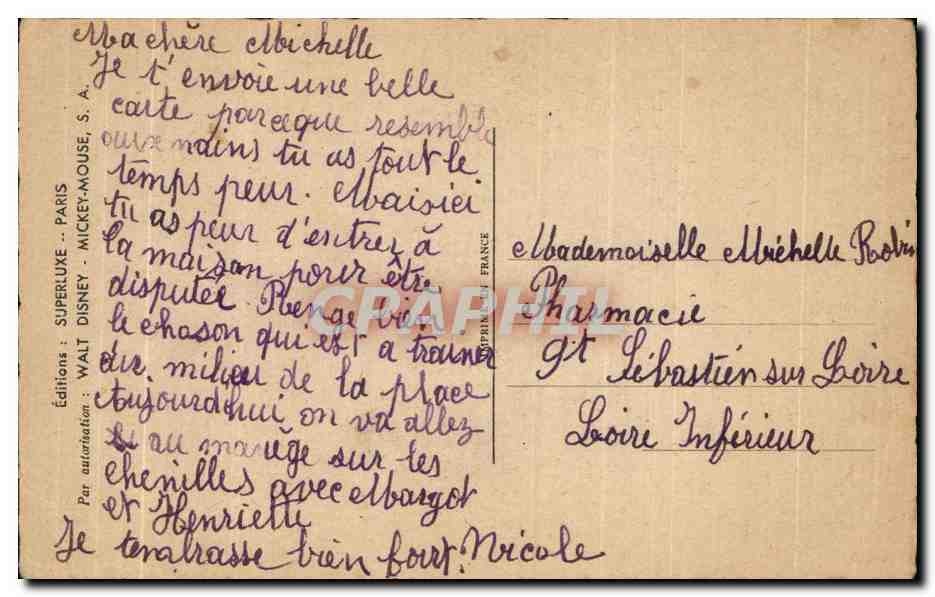 Ma chère Michelle
Je t'envoie une belle
carte parceque resemble
aux nains tu as tout le
temps peur. Mais ici
tu as peur d'entrer à
la maison pour être
disputée. Range bien
le chason qui est a trainer
au milieu de la place
Aujourd'hui on va allez
au manège sur les
chenilles avec Margot
et Henriette
Je tembrasse bien fort. Nicole
Éditions : SUPERLUXE -- PARIS
Par autorisation : WALT DISNEY - MICKEY-MOUSE, S. A.
IMPRIMÉ EN FRANCE
Mademoiselle Michelle Robin
Pharmacie
St Sébastien sur Loire
Loire Inférieur
CPAPHIL